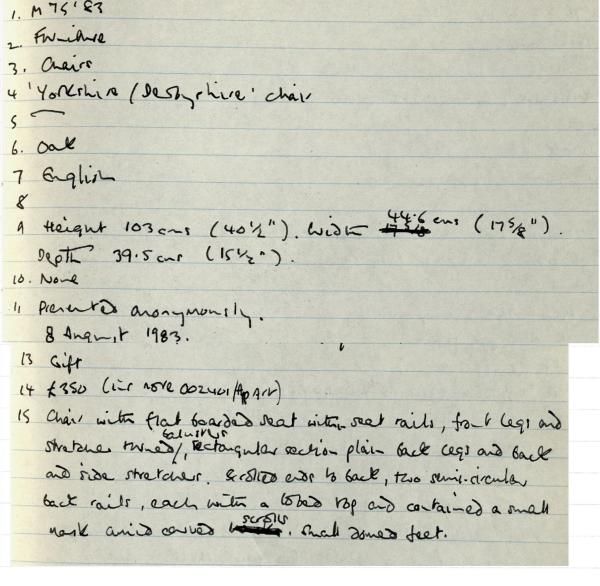 1. M 75'83
2. Furniture
3. Chairs
4 'Yorkshire / Derbyshire' chair
5 —
6. Oak
7 English
8
9 Height 103 cms (40½"). Width 44.6 cms (17 5/8").
Depth 39.5 cms (15½").
10. None
11 Presented anonymously.
8 August 1983.
13 Gift
14 £350 (ins note 002401/App Art)
15 Chair with flat boarded seat within seat rails, front legs and
stretcher turned baluster, rectangular section plain back legs and back
and side stretchers. Scrolled ends to back, two semi-circular
back rails, each with a lobed top and contained a small
mask amid carved scrolls. Small domed feet.